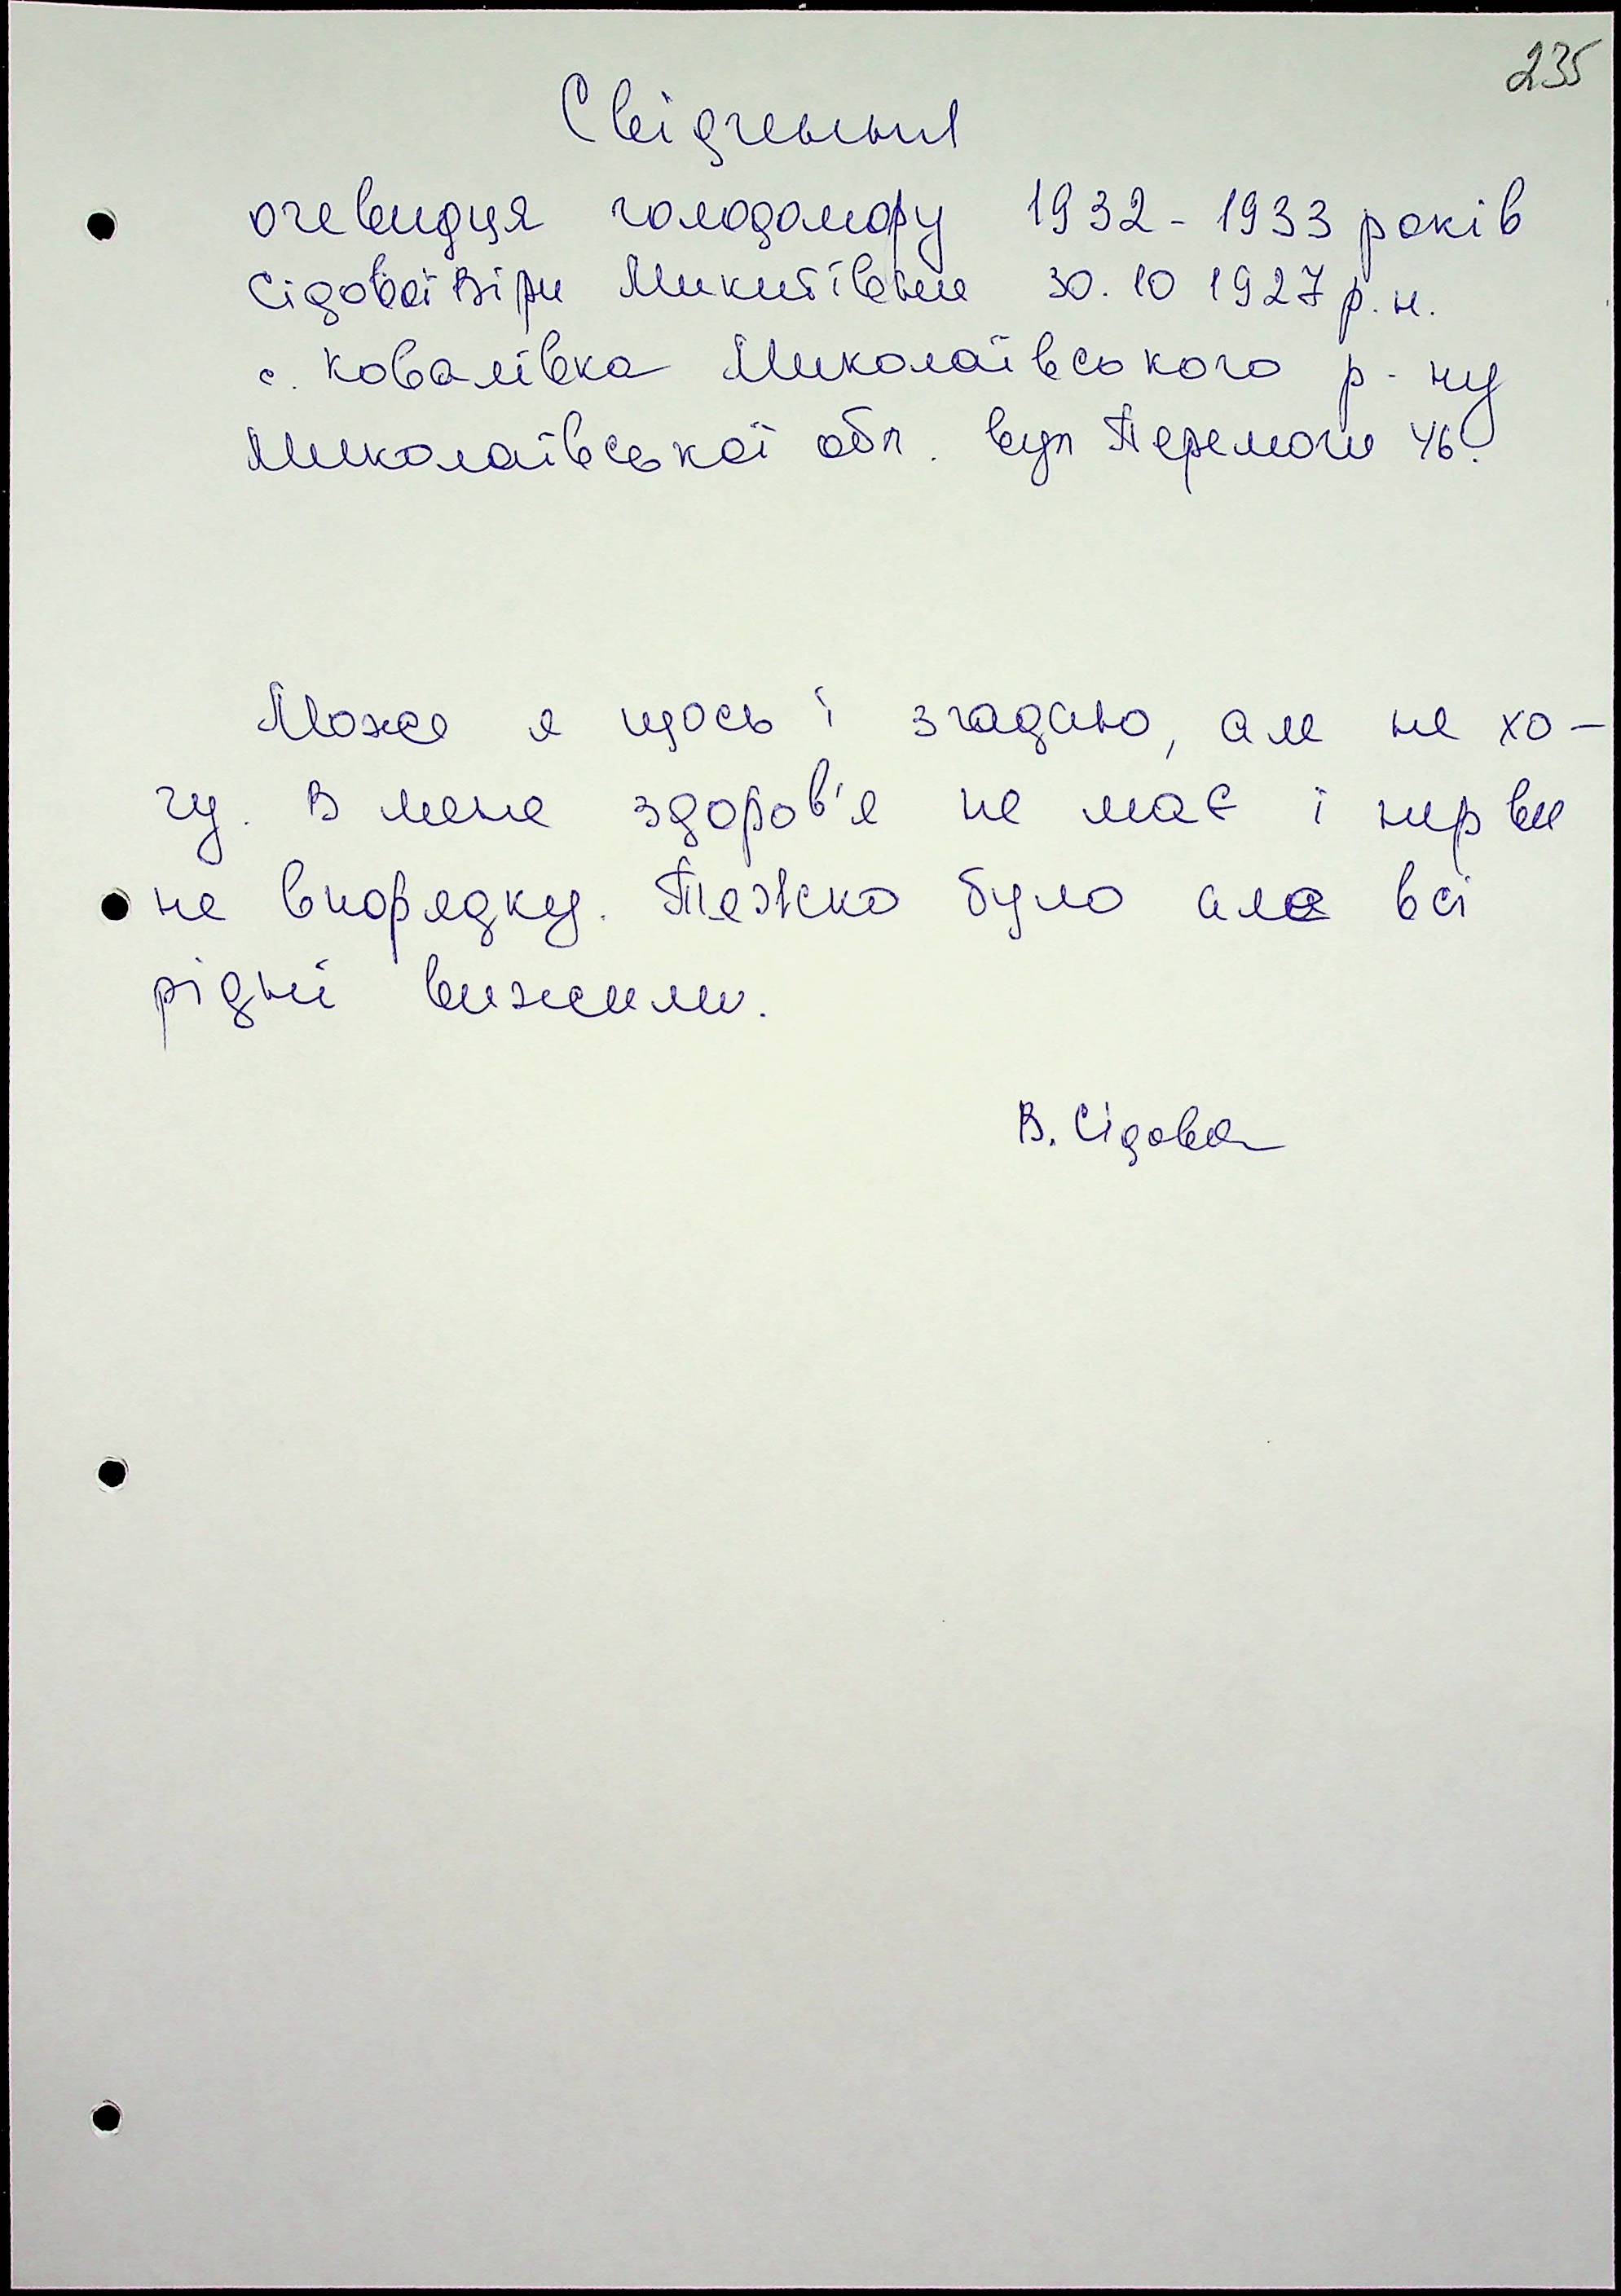 235
Свідчення
очевидця голодомору 1932-1933 років
Сідової Віри Микитівни 30.10 1927 р.н.
с. Ковалівка Миколаївського р-ну
Миколаївської обл. вул Перемоги 46.
Може я щось і згадаю, але не хо-
чу. В мене здоров'я не має і нерви
не впорядку. Тяжко було але всі
рідні вижили.
В. Сідова